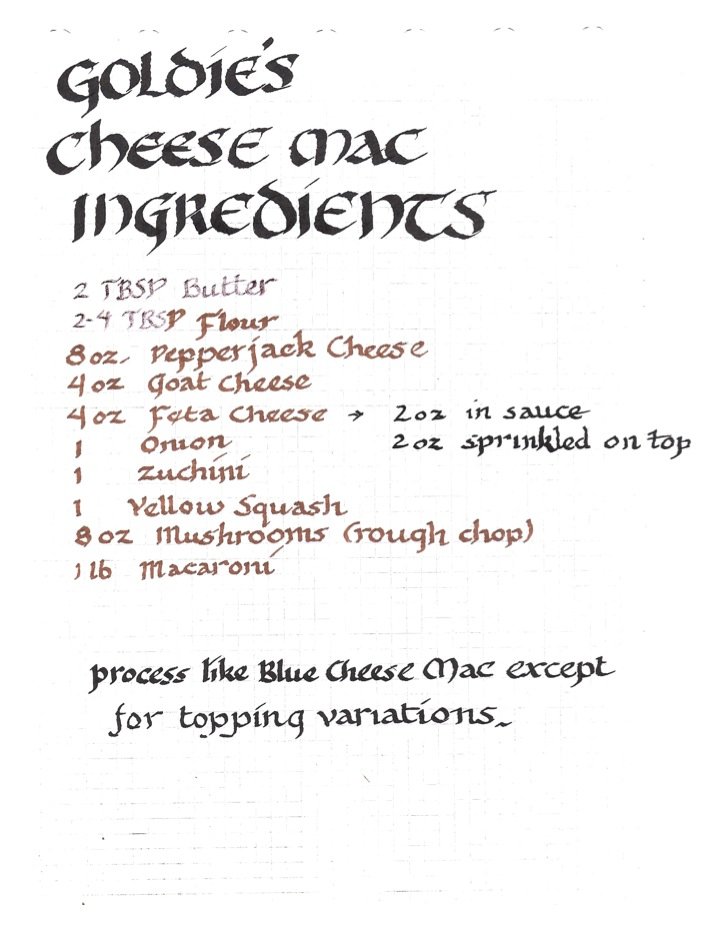 Goldie's
Cheese Mac
Ingredients
2 TBSP Butter
2-4 TBSP Flour
8 oz. Pepperjack Cheese
4 oz Goat Cheese
4 oz Feta Cheese → 2 oz in sauce
2 oz sprinkled on top
1 Onion
1 Zuchini
1 Yellow Squash
8 oz Mushrooms (rough chop)
1 lb Macaroni
process like Blue Cheese Mac except
for topping variations.